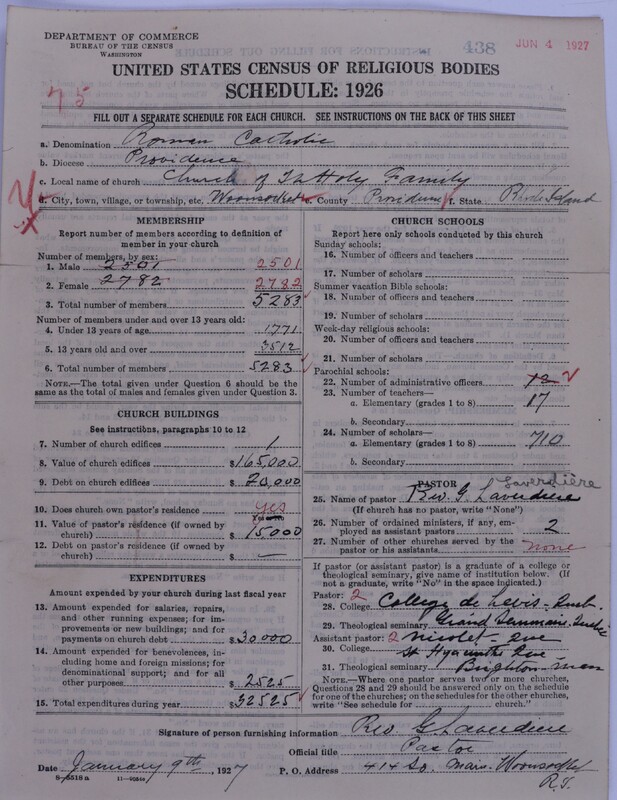 DEPARTMENT OF COMMERCE
BUREAU OF THE CENSUS
WASHINGTON
438
JUN 4 1927
UNITED STATES CENSUS OF RELIGIOUS BODIES
SCHEDULE: 1926
75
FILL OUT A SEPARATE SCHEDULE FOR EACH CHURCH. SEE INSTRUCTIONS ON THE BACK OF THIS SHEET
a. Denomination Roman Catholic
b. Diocese Providence
c. Local name of church Church of The Holy Family
d. City, town, village, or township, etc. Woonsocket e. County Providence f. State Rhode Island
MEMBERSHIP
Report number of members according to definition of member in your church
Number of members, by sex:
1. Male 2501 2501
2. Female 2782 2782
3. Total number of members 5283
Number of members under and over 13 years old:
4. Under 13 years of age 1771
5. 13 years old and over 3512
6. Total number of members 5283
NOTE.—The total given under Question 6 should be the same as the total of males and females given under Question 3.
CHURCH BUILDINGS
See instructions, paragraphs 10 to 12
7. Number of church edifices 1
8. Value of church edifices $165,000
9. Debt on church edifices $20,000
10. Does church own pastor's residence yes
Yes or No
11. Value of pastor's residence (if owned by church) $15000
12. Debt on pastor's residence (if owned by church) $ —
EXPENDITURES
Amount expended by your church during last fiscal year
13. Amount expended for salaries, repairs, and other running expenses; for improvements or new buildings; and for payments on church debt $30,000
14. Amount expended for benevolences, including home and foreign missions; for denominational support; and for all other purposes $2525
15. Total expenditures during year $32525
CHURCH SCHOOLS
Report here only schools conducted by this church
Sunday schools:
16. Number of officers and teachers
17. Number of scholars
Summer vacation Bible schools:
18. Number of officers and teachers
19. Number of scholars
Week-day religious schools:
20. Number of officers and teachers
21. Number of scholars
Parochial schools:
22. Number of administrative officers
23. Number of teachers—
a. Elementary (grades 1 to 8) 17
b. Secondary
24. Number of scholars—
a. Elementary (grades 1 to 8) 710
b. Secondary
PASTOR
Laverdière
25. Name of pastor Rev. G Laverdiere
(If church has no pastor, write "None")
26. Number of ordained ministers, if any, employed as assistant pastors 2
27. Number of other churches served by the pastor or his assistants none
If pastor (or assistant pastor) is a graduate of a college or theological seminary, give name of institution below. (If not a graduate, write "No" in the space indicated.)
Pastor: 2
28. College College de Levis - Que.
29. Theological seminary Grand Seminaire Quebec
Assistant pastor: 2 Nicolet - Que
30. College St Hyacinthe Que
31. Theological seminary Brighton - Mass
NOTE.—Where one pastor serves two or more churches, Questions 28 and 29 should be answered only on the schedule for one of the churches; on the schedules for the other churches, write "See schedule for church."
Signature of person furnishing information Rev G Laverdiere
Official title Pastor
Date January 9th, 1927 P. O. Address 414 So. Main. Woonsocket
R.I.
8-5518a